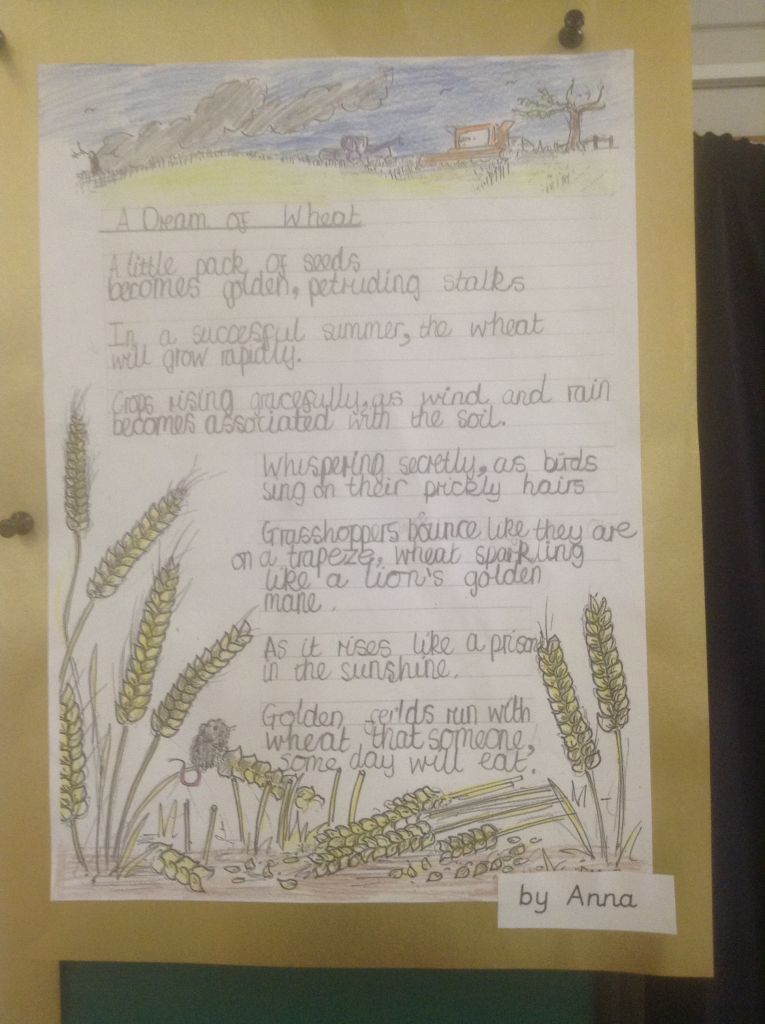 A Dream of Wheat
A little pack of seeds
becomes golden, petruding stalks
In a succesful summer, the wheat
will grow rapidly.
Crops rising gracefully, as wind and rain
becomes associated with the soil.
Whispering secretly, as birds
sing on their prickly hairs
Grasshoppers bounce like they are
on a trapeze, wheat sparkling
like a lion's golden
mane.
As it rises like a prison
in the sunshine.
Golden run with
wheat that someone,
some day will eat.
by Anna